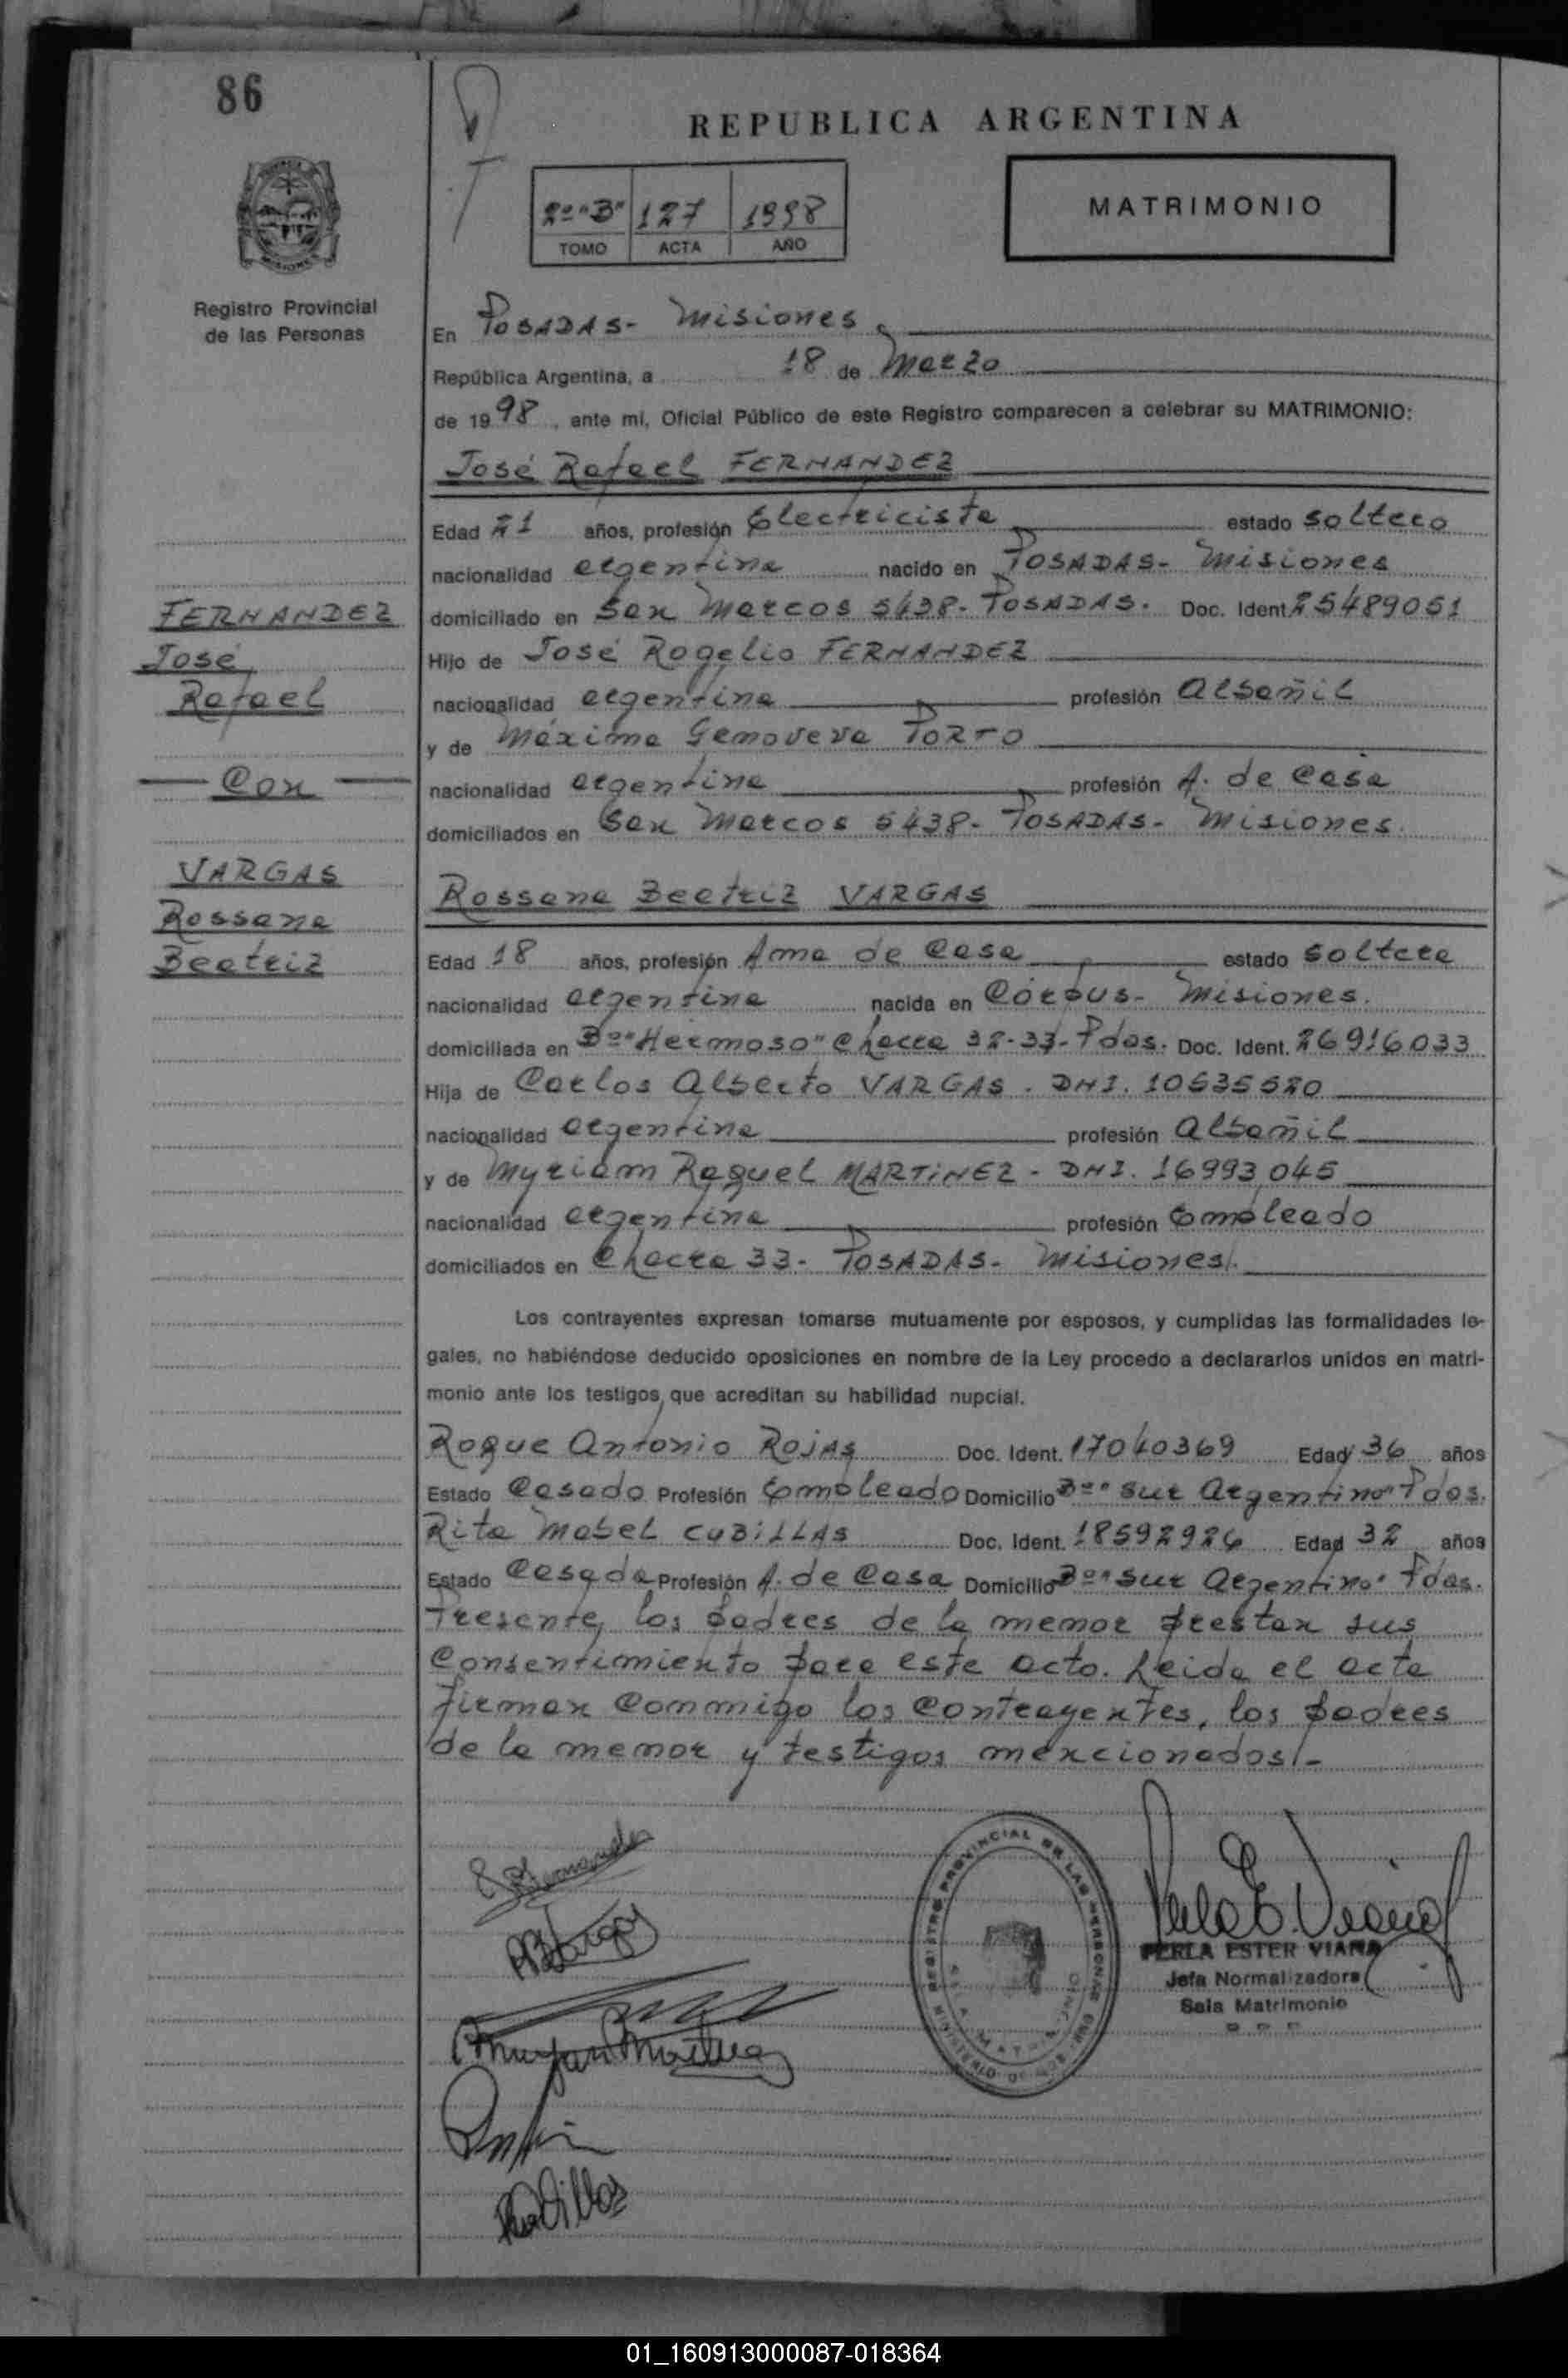 86
REPUBLICA ARGENTINA
2º "B" 127 1998
TOMO ACTA AÑO
MATRIMONIO
Registro Provincial
de las Personas
En POSADAS- Misiones
República Argentina, a 18 de Marzo
de 1998, ante mi, Oficial Público de este Registro comparecen a celebrar su MATRIMONIO:
José Rafael FERNANDEZ
Edad 21 años, profesión Electricista estado soltero
nacionalidad argentina nacido en POSADAS- Misiones
domiciliado en San Marcos 5438- POSADAS. Doc. Ident. 25489051
Hijo de José Rogelio FERNANDEZ
nacionalidad argentina profesión Albañil
y de Máxima Genoveva PORTO
nacionalidad argentina profesión A. de Casa
domiciliados en San Marcos 5438- POSADAS- Misiones.
FERNANDEZ
José
Rafael
Con
VARGAS
Rossana
Beatriz
Rossana Beatriz VARGAS
Edad 18 años, profesión Ama de Casa estado soltera
nacionalidad argentina nacida en Córpus- Misiones.
domiciliada en Bº "Hermoso" Chacra 32-33- Pdas. Doc. Ident. 26916033
Hija de Carlos Alberto VARGAS. DNI. 10535520
nacionalidad argentina profesión Albañil
y de Myriam Raquel MARTINEZ - DNI. 16993045
nacionalidad argentina profesión Empleado
domiciliados en Chacra 33- POSADAS- Misiones/.
Los contrayentes expresan tomarse mutuamente por esposos, y cumplidas las formalidades le-
gales, no habiéndose deducido oposiciones en nombre de la Ley procedo a declararlos unidos en matri-
monio ante los testigos que acreditan su habilidad nupcial.
Roque Antonio ROJAS Doc. Ident. 17040369 Edad 36 años
Estado Casado Profesión Empleado Domicilio Bº "Sur Argentino" Pdas.
Rita Mabel CUBILLAS Doc. Ident. 18592926 Edad 32 años
Estado Casada Profesión A. de Casa Domicilio Bº "Sur Argentino" Pdas.
Presente, los padres de la menor prestan sus
Consentimiento para este acto. Leida el acta
firman conmigo los contrayentes, los padres
de la menor y testigos mencionados/-
REGISTRO PROVINCIAL DE LAS PERSONAS
PERLA ESTER VIANA
Jefa Normalizadora
Sala Matrimonio
01_160913000087-018364